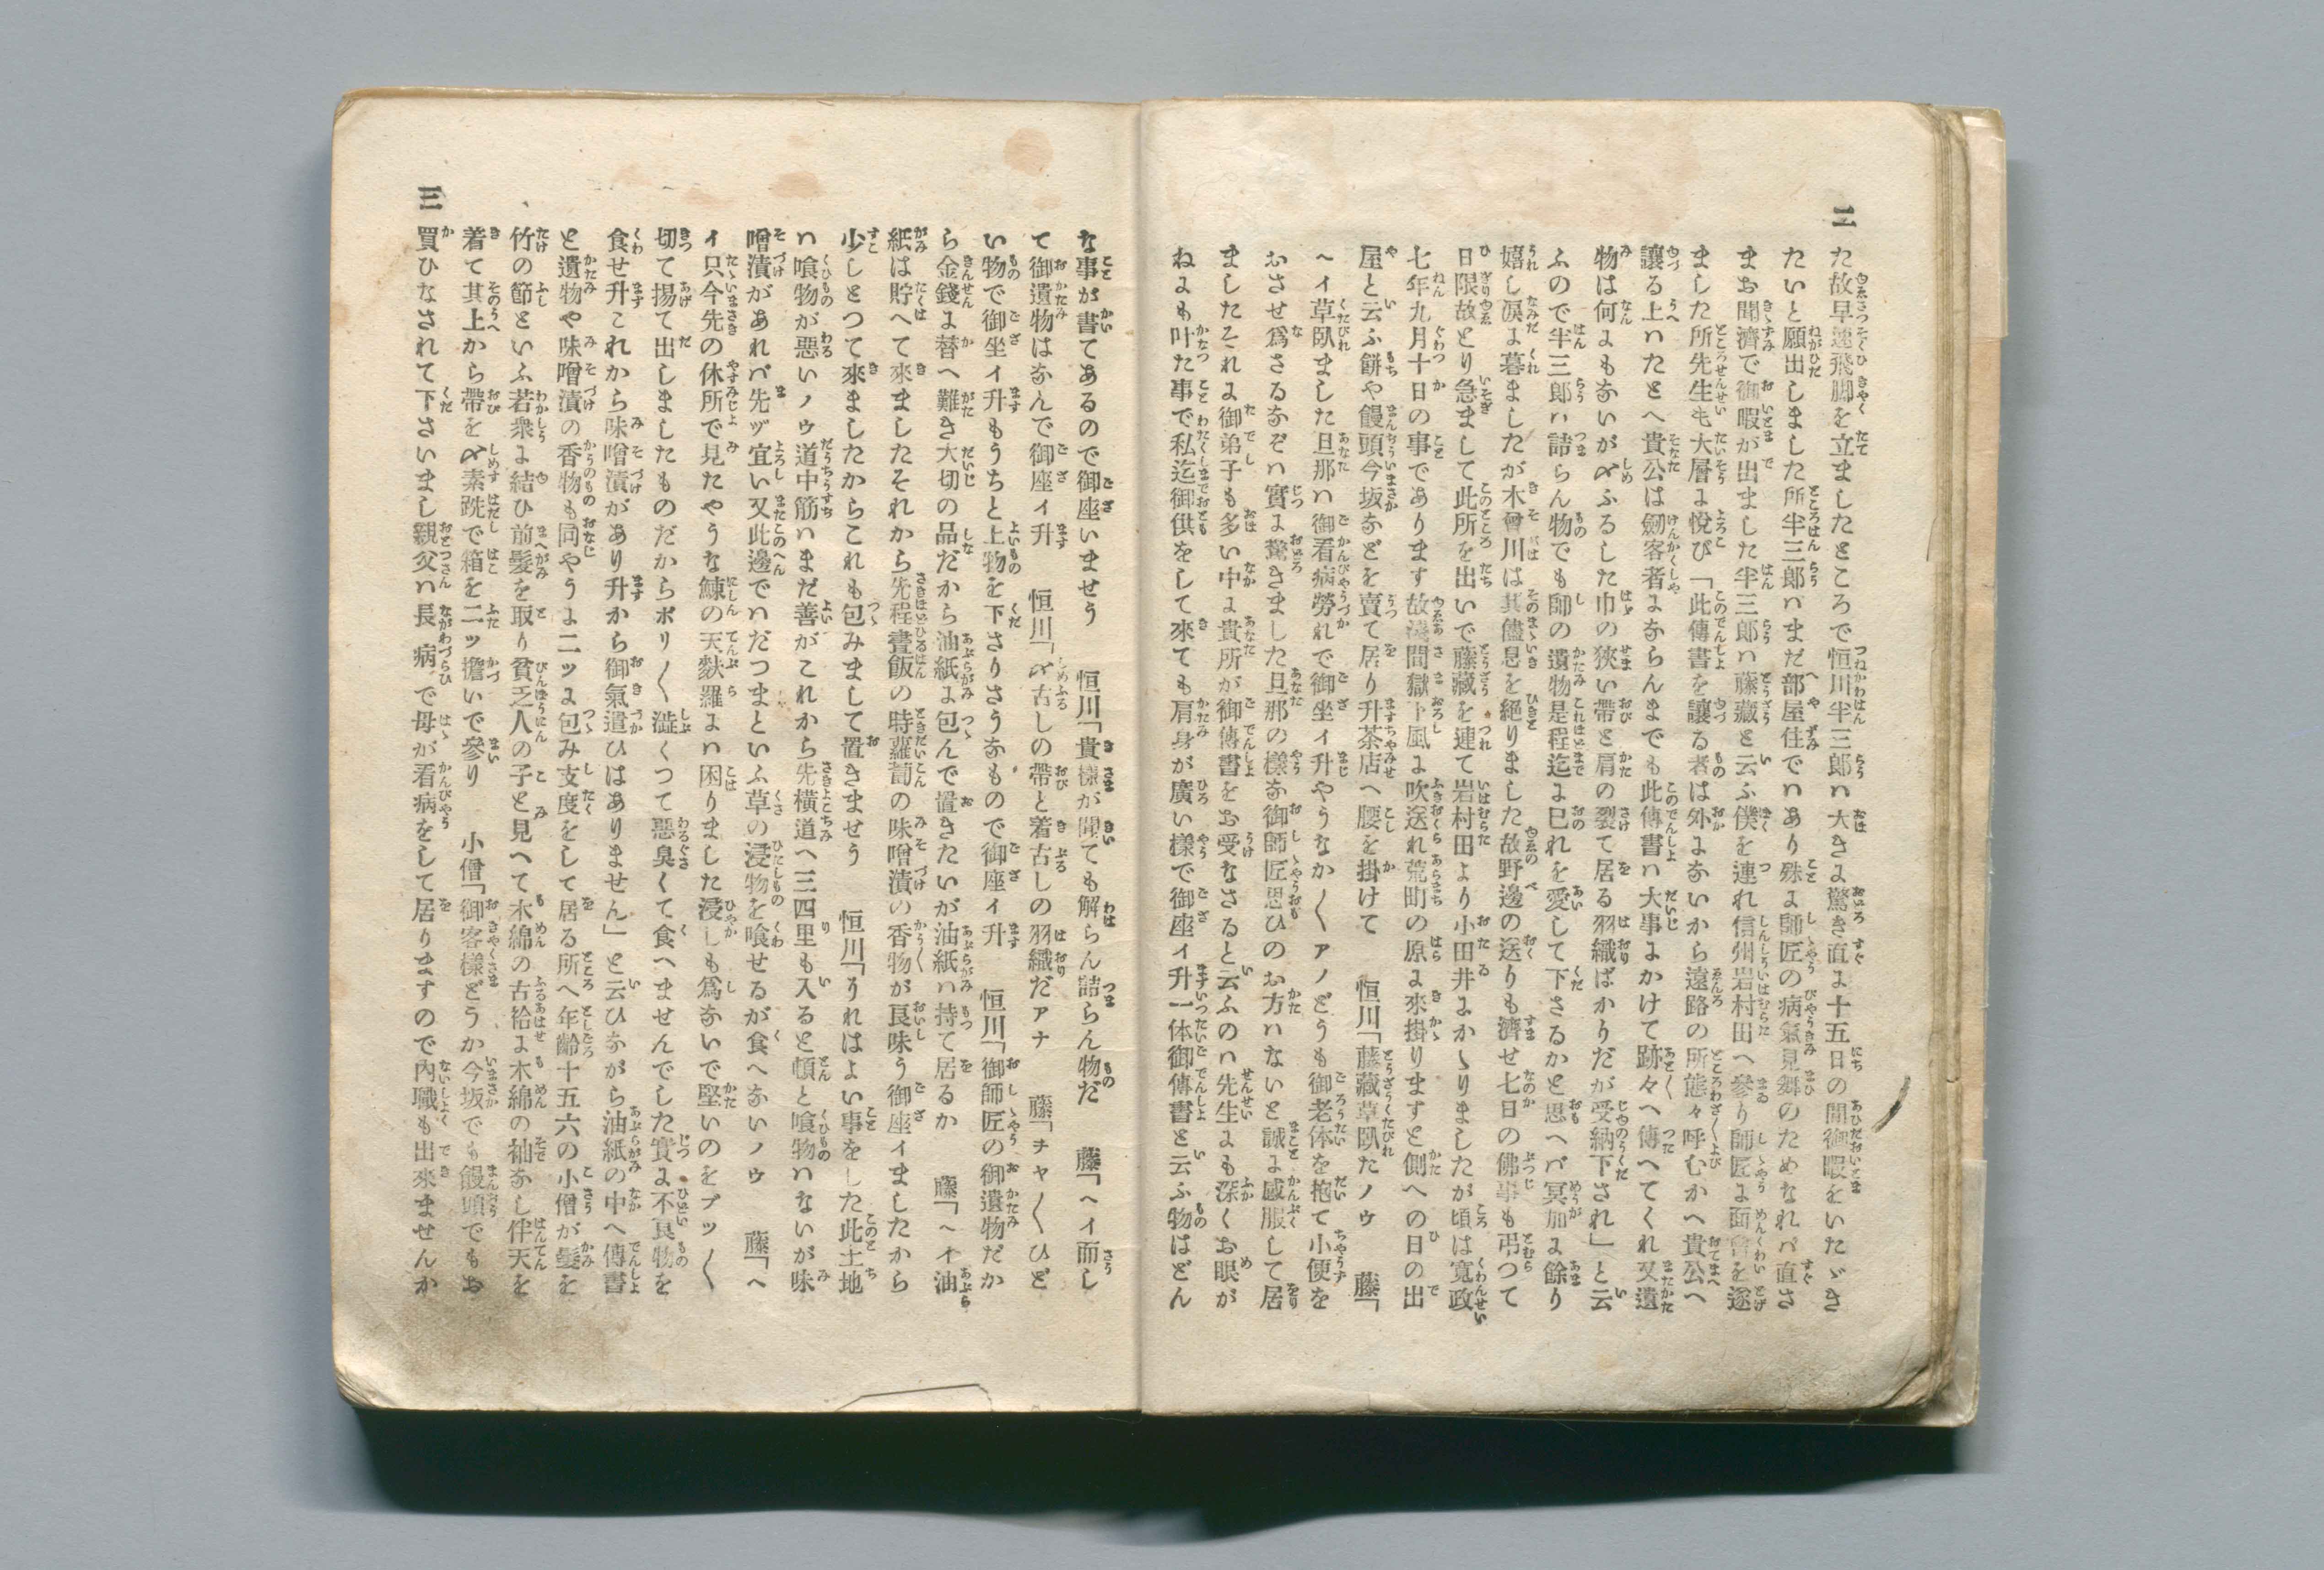 二
た故早速飛脚を立ましたところで恒川半三郎ハ大きに驚き直に十五日の間御暇をいたゞき
たいと願出しました所半三郎ハまだ部屋住でハあり殊に師匠の病氣見舞のためなれバ直さ
まお聞濟で御暇が出ました半三郎ハ藤藏と云ふ僕を連れ信州岩村田へ參り師匠に面會を遂
ました所先生も大層に悅び「此傳書を讓る者は外にないから遠路の所態々呼むかへ貴公へ
讓る上ハたとへ貴公は劔客者にならんまでも此傳書ハ大事にかけて跡々へ傳へてくれ又遺
物は何にもないが〆ふるした巾の狹い帶と肩の裂て居る羽織ばかりだが受納下され」と云
ふので半三郎ハ詰らん物でも師の遺物是程迄に己れを愛して下さるかと思へバ冥加に餘り
嬉し淚に暮ましたが木曾川は其儘息を絕りました故野邊の送りも濟せ七日の佛事も弔つて
日限故とり急まして此所を出いで藤藏を連て岩村田より小田井にかゝりましたが頃は寬政
七年九月十日の事であります故淺間獄下風に吹送れ荒町の原に來掛りますと側への日の出
屋と云ふ餅や饅頭今坂などを賣て居り升茶店へ腰を掛けて　恒川「藤藏草臥たノウ　藤「
ヘイ草臥ました旦那ハ御看病勞れで御坐イ升やうなか〱アノどうも御老体を抱て小便を
おさせ爲さるなぞハ實に驚きました旦那の樣な御師匠思ひのお方ハないと誠に感服して居
ましたそれに御弟子も多い中に貴所が御傳書をお受なさると云ふのハ先生にも深くお眼が
ねにも叶た事で私迄御供をして來ても肩身が廣い樣で御座イ升一体御傳書と云ふ物はどん
な事が書てあるので御座いませう　恒川「貴樣が聞ても解らん詰らん物だ　藤「ヘイ而し
て御遺物はなんで御座イ升　恒川「〆古しの帶と着古しの羽織だアナ　藤「チヤ〱ひど
い物で御坐イ升もうちと上物を下さりさうなもので御座イ升　恒川「御師匠の御遺物だか
ら金錢に替へ難き大切の品だから油紙に包んで置きたいが油紙ハ持て居るか　藤「ヘイ油
紙は貯へて來ましたそれから先程晝飯の時蘿蔔の味噌漬の香物が良味う御座イましたから
少しとつて來ましたからこれも包みまして置きませう　恒川「うれはよい事をした此土地
ハ喰物が惡いノウ道中筋ハまだ善がこれから先橫道へ三四里も入ると頓と喰物ハないが味
噌漬があれバ先ヅ宜い又此邊でハだつまといふ草の浸物を喰せるが食へないノウ　藤「ヘ
イ只今先の休所で見たやうな鰊の天麩羅にハ困りました浸しも爲ないで堅いのをブッ〱
切て揚て出しましたものだからポリ〱澁くつて惡臭くて食へませんでした實に不良物を
食せ升これから味噌漬があり升から御氣遣ひはありません」と云ひながら油紙の中へ傳書
と遺物や味噌漬の香物も同やうに二ッに包み支度をして居る所へ年齡十五六の小僧が髮を
竹の節といふ若衆に結ひ前髮を取り貧乏人の子と見へて木綿の古袷に木綿の袖なし伴天を
着て其上から帶を〆素跣で箱を二ッ擔いで參り　小僧「御客樣どうか今坂でも饅頭でもお
買ひなされて下さいまし親父ハ長病で母が看病をして居りますので內職も出來ませんか
三